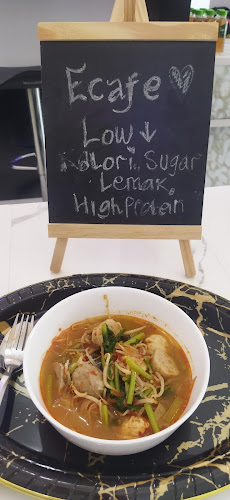 Ecafe
Low ↓
Kalori, Sugar
Lemak,
High Protein